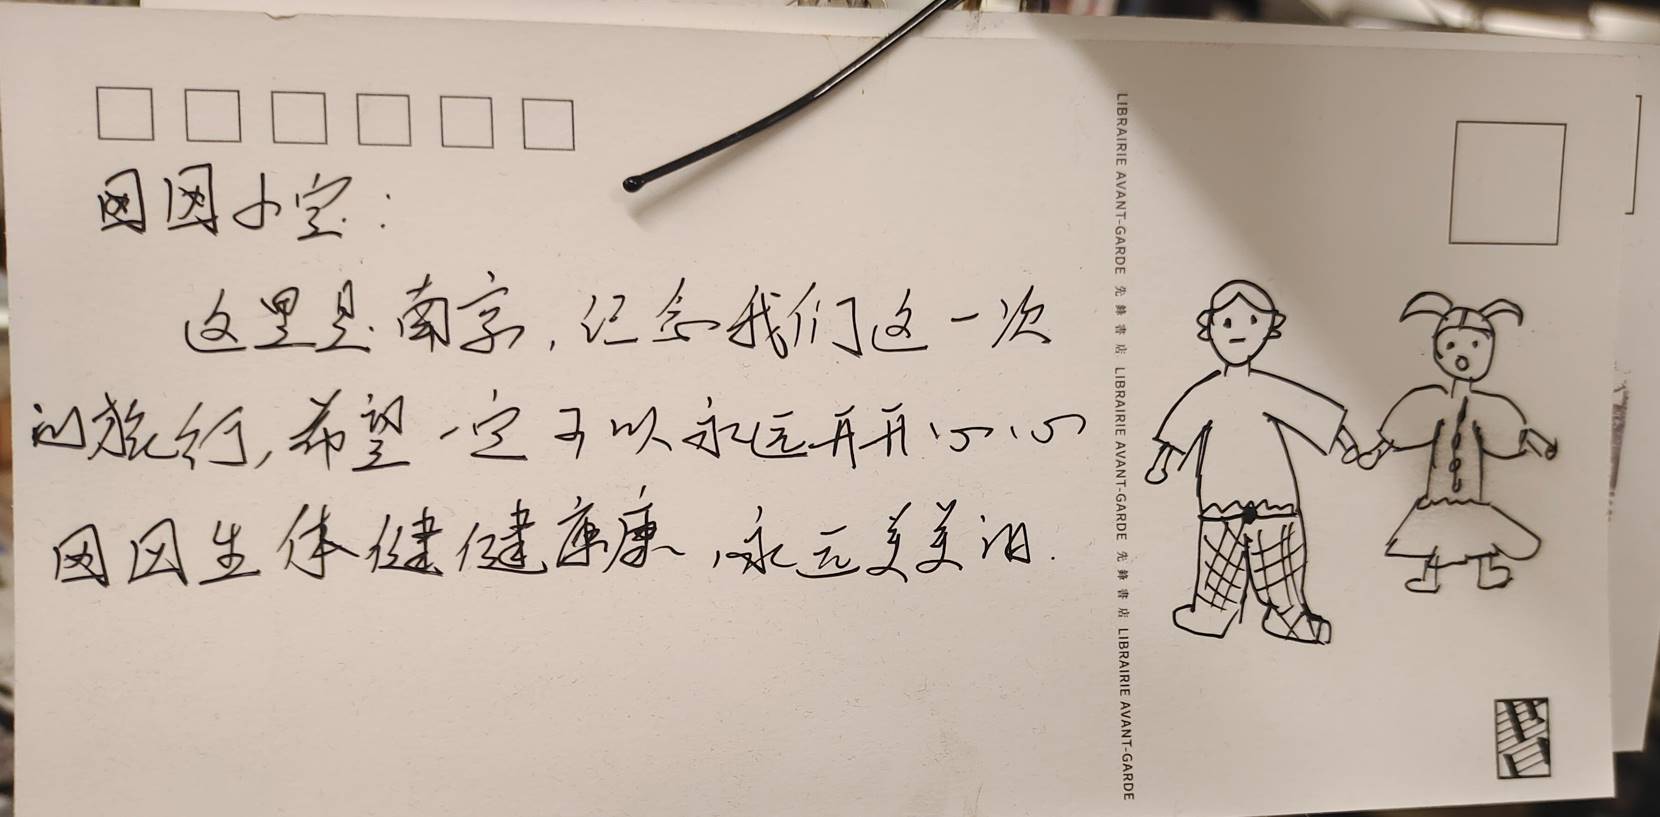 囡囡小宝:
这里是南京,纪念我们这一次
的旅行,希望一定可以永远开开心心
囡囡生体健健康康,永远美美的.
LIBRAIRIE AVANT-GARDE 先鋒書店 LIBRAIRIE AVANT-GARDE 先鋒書店 LIBRAIRIE AVANT-GARDE